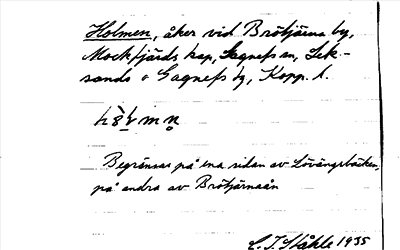 Holmen, åker vid Brötjärna by,
Mockfjärds kap, Gagnefs sn, Lek-
sands o Gagnefs tg, Kopp. l.
Begränsas på ena sidan av Lövängsbäcken,
på andra av Brötjärnaån
C. I. Ståhle 1935